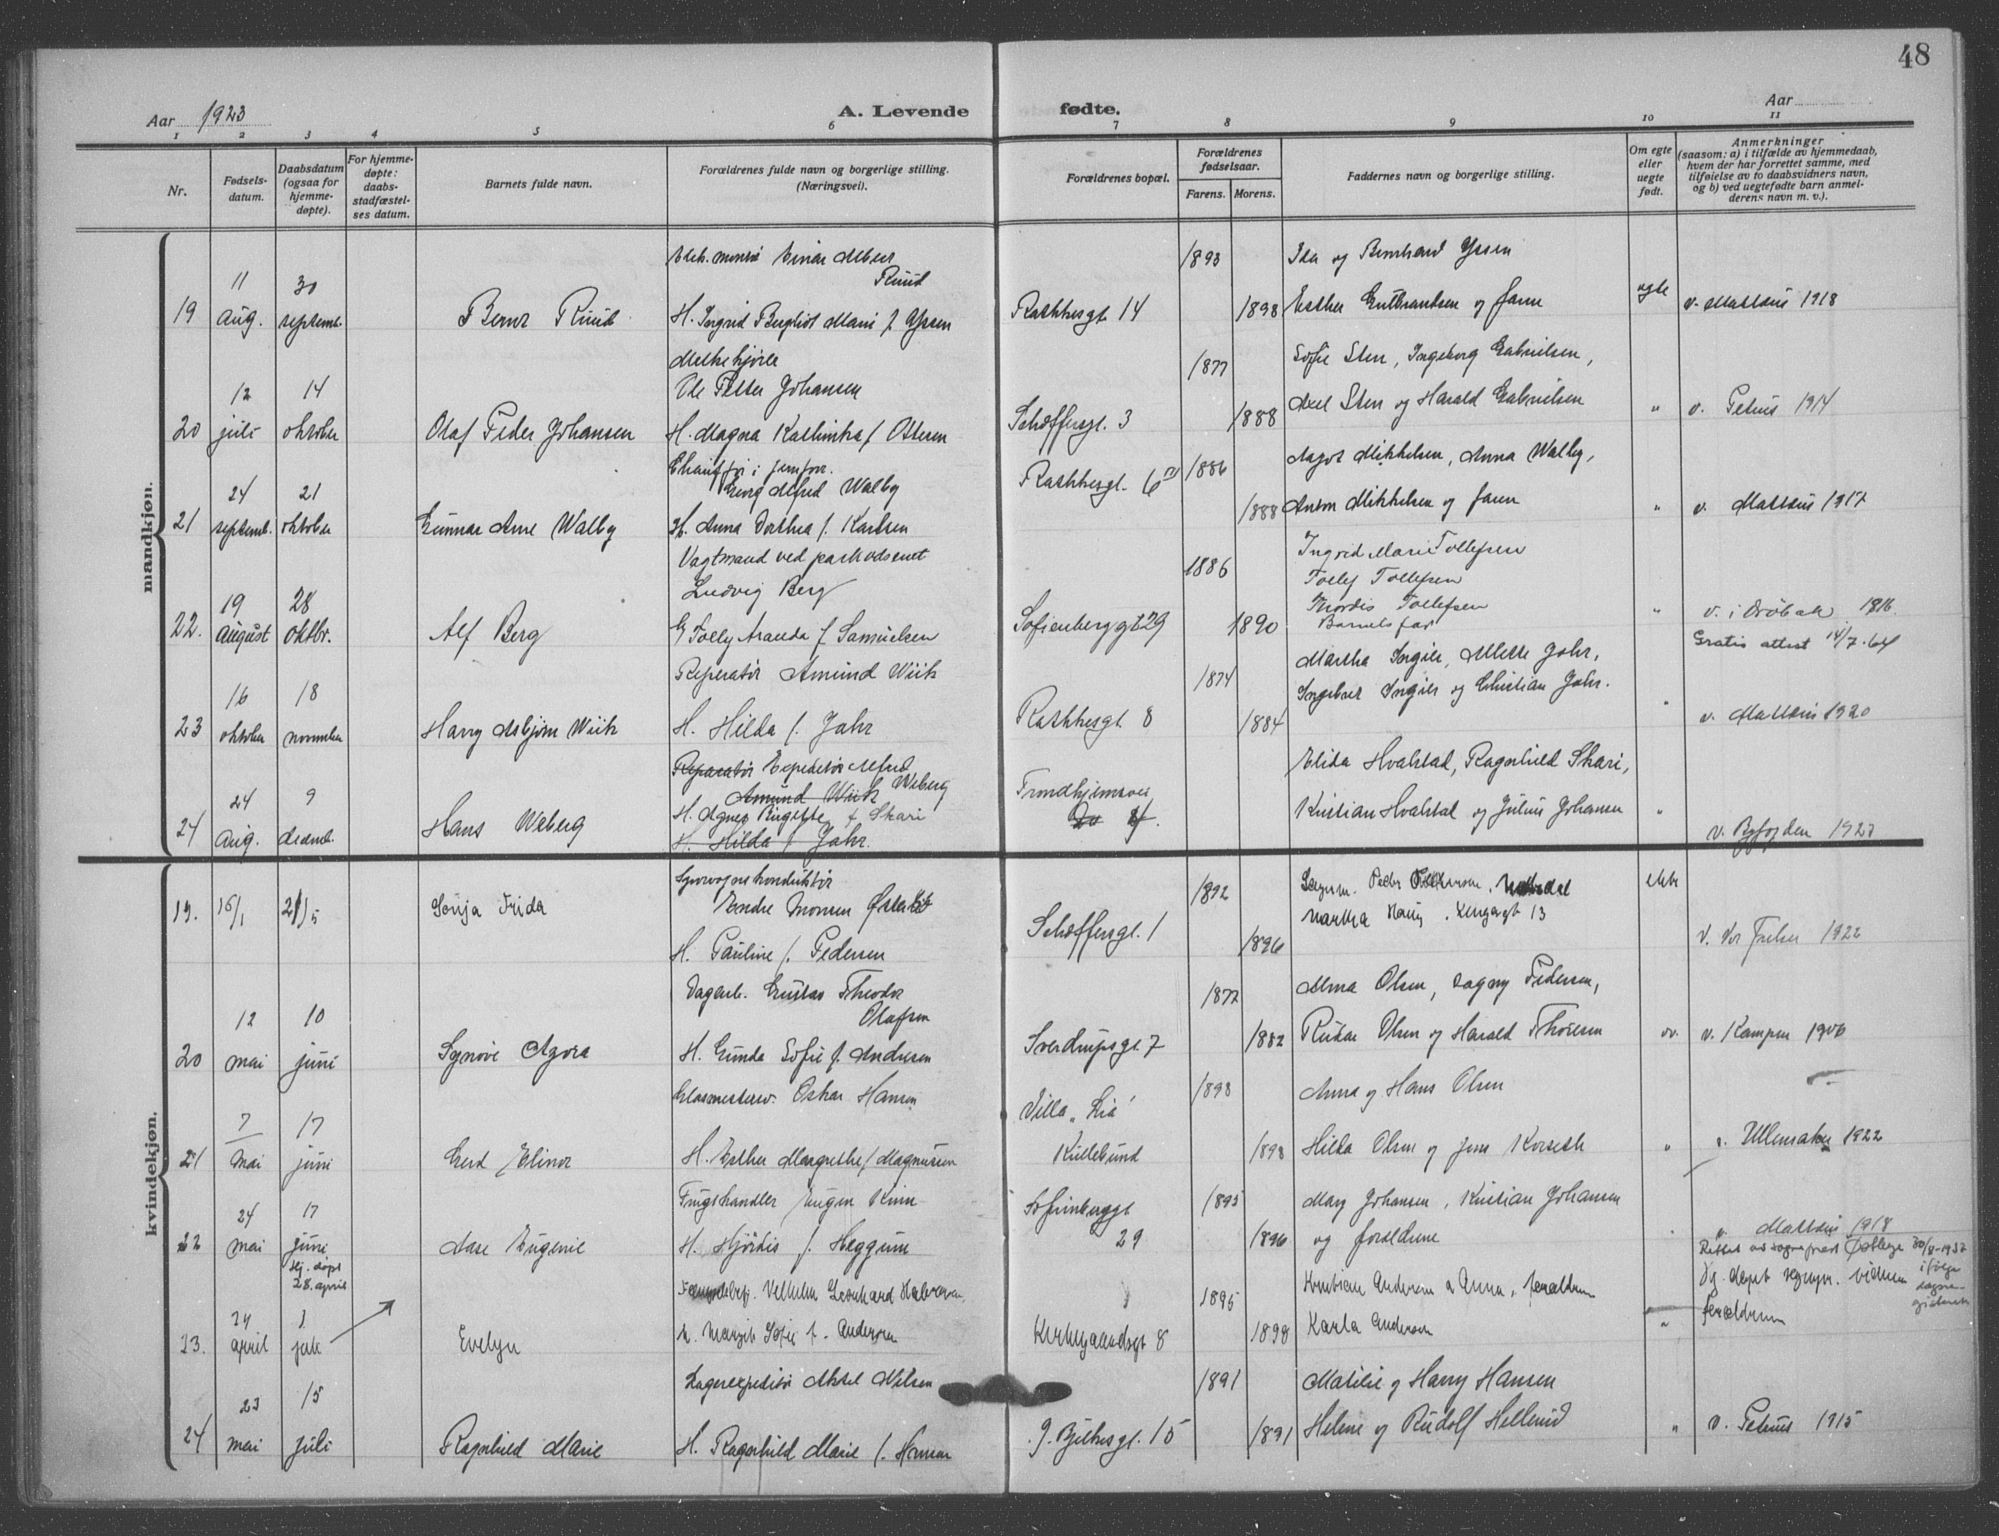 48
Aar 1923
A. Levende
fødte.
Aar
1 2 3 4 5 6 7 8 9 10 11
Nr.
Fødsels-
datum.
Daabsdatum
(ogsaa for
hjemme-
døpte).
For hjemme-
døpte:
daabs-
stadfæstel-
ses datum.
Barnets fulde navn.
Forældrenes fulde navn og borgerlige stilling.
(Næringsvei).
Forældrenes bopæl.
Forældrenes
fødselsaar.
Farens. Morens.
Faddernes navn og borgerlige stilling.
Om egte
eller
uegte
født.
Anmerkninger
(saasom: a) i tilfælde av hjemmedaab,
hvem der har forrettet samme, med
tilføielse av to daabsvidners navn,
og b) ved uegtefødte barn anmel-
derens navn m. v.).
mandkjøn.
19
11
Aug.
30
septemb.
Ruud
Einar
Ruud
H. Ingrid Bergliot Marie f. Yssen
Rathkesgt. 14
1893
1898
Ida og Bernhard Yssen
Esther Gulbrandsen og faren
egte
v. Mattæus 1918
20
12
juli
14
oktober
Olaf Peder Johansen
Melkekjører
Ole Petter Johansen
H. Magna Kathinka f. Ottesen
Schæffersgt. 3
1877
1888
Sofie Sten, Ingeborg Gabrielsen,
Axel Sten og Harald Gabrielsen
"
v. Petrus 1914
21
24
septemb.
21
oktober
Gunnar Arne Walby
Georg Alfred Walby
H. Anna Dorthea f. Karlsen
Rathkesgt. 6
1886
1888
Aagot Mikkelsen, Anna Walby,
Anton Mikkelsen og faren
"
v. Mattæus 1917
22.
19
August
28
oktbr.
Alf Berg
Vagtmand ved
Ludvig Berg
f. Samuelsen
Sofienberggt 29
1886
1890
Ingrid Marie Tollefsen
Tollef Tollefsen
Thordis Tollefsen
Barnets far
"
v. i Drøbak 1916.
Gratis attest 14/7-64
23
16
oktober
18
november
Harry Asbjørn Wiik
Reparatør Amund Wiik
H. Hilda f. Jahr
Rathkesgt 8
1874
1884
Martha Ingier, Mette Jahr,
Ingebret Ingier og Christian Jahr.
"
v. Mattæus 1920
24
24
Aug.
9
desemb.
Hans Weberg
Reparatør Expeditør Alfred
Amund Wiik Weberg
H. Agnes Birgitte f Skari
H. Hilda f Jahr.
Trondhjemsvei
Do 4.
Elida Hvalstad, Ragnhild Skari,
Kristian Hvalstad og Julius Johansen
"
v. Byfogden 1923
kvindekjøn.
19.
15/1
21/5
Sonja Frida
Sporvognskonduktør
Endre Monsen
H. Pauline f. Pedersen
Schæffersgt. 1
1892
1896
Martha
13
ekte
v. Vor Frelser 1922
20
12
mai
10
juni
Synøve Agora
Dagarb. Gustav Theodor
Olafsen
H. Gunda Sofie f. Andersen
Sverdrupsgt 7
1877
1882
Alma Olsen, Dagny Pedersen,
Olsen og Harald Thoresen
v. Kampen 1906
21
7
mai
17
juni
Gerd Elinor
Glasmesterarv. Oskar Hansen
H. Esther Margrethe f Magnusen
Villa "Lia"
Kullebund
1893
1898
Anna og Hans Olsen
Hilda Olsen og Jens Korseth
"
v. Ullensaker 1922
22
24
mai
17
juni
Aase Eugenie
Frugthandler Eugen Kinn
H. Hjördis f. Heggum
Sofienberggt
29
1895
1896
Mary Johansen, Kristian Johansen
og forældrene
v. Mattæus 1918
30/8-1937
23.
24
april
Hj. døpt
28. april
1
juli
Evelyn
Leonhard Halvorsen
h. Margit Sofie f. Andersen
Kirkegaardsgt 8
1895
1898
Kristian Andersen & Anna, forældrene
Karla Andersen
"
forældrene
24
23
mai
15
juli
Ragnhild Marie
Lagerexpeditør Aksel Nilsen
H. Ragnhild Marie f. Hansen
G. Bjelkesgt. 15
1891
1891
Matilde og Harry Hansen
Helene og Rudolf Hellerud
"
v. Petrus 1915